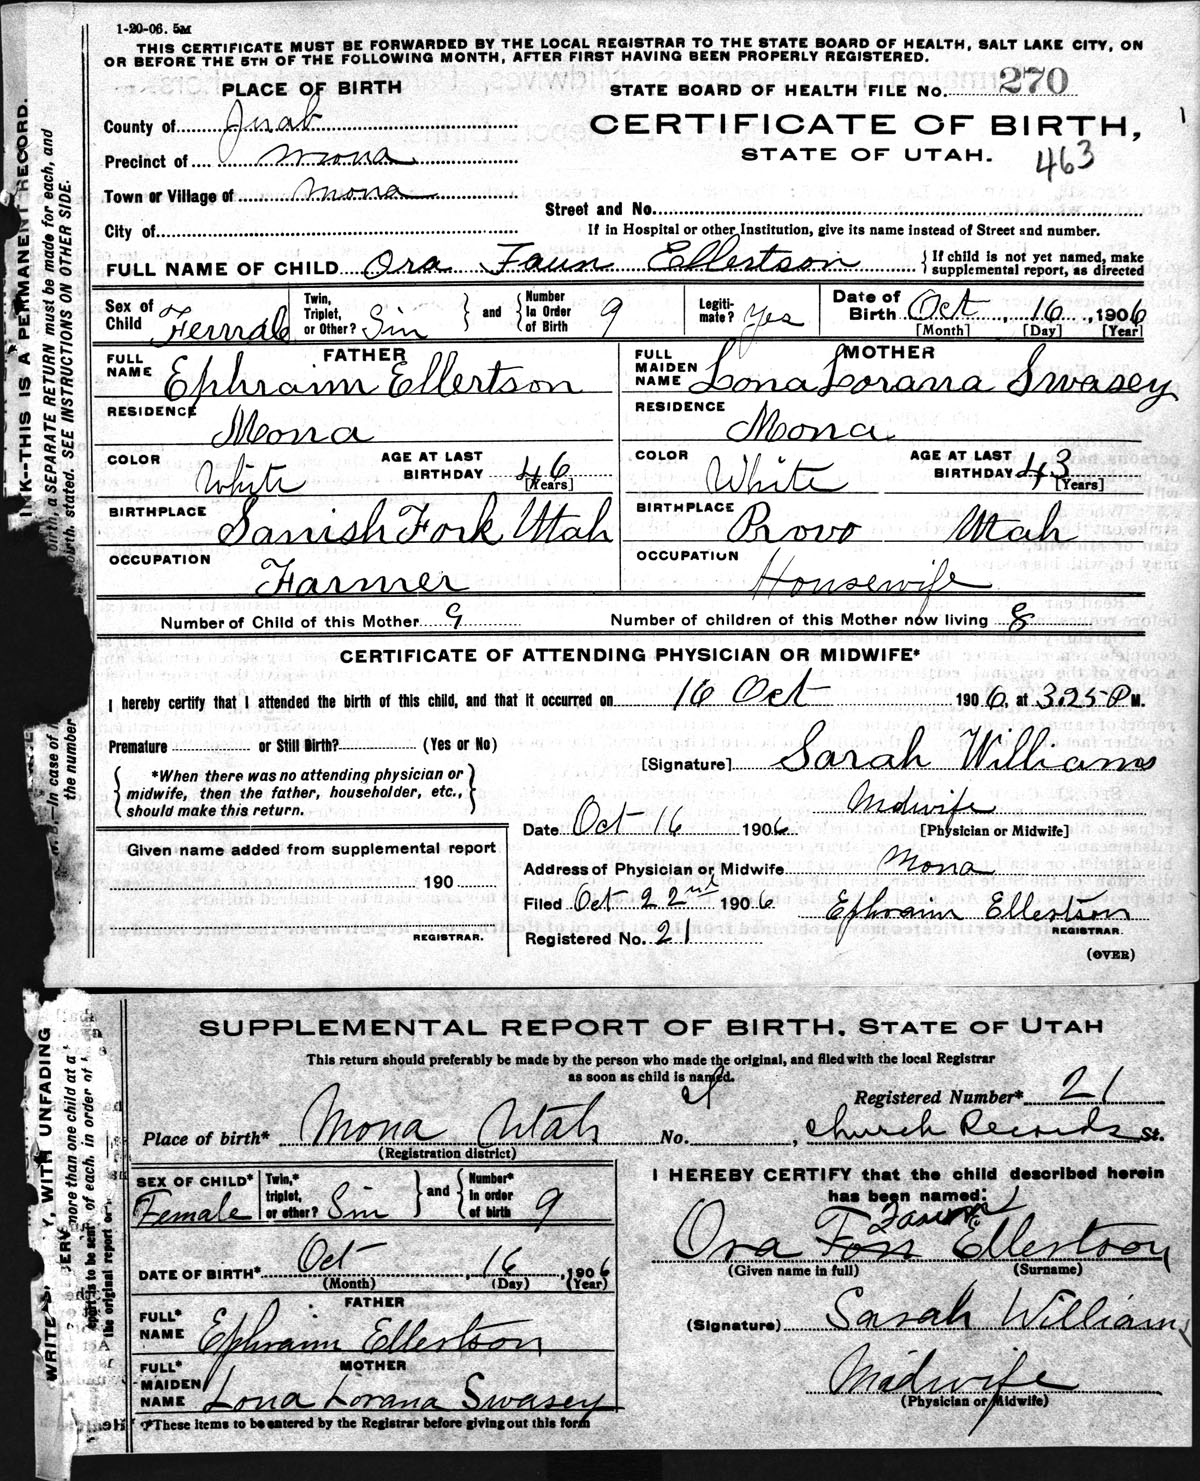 1-20-06. 5M
THIS CERTIFICATE MUST BE FORWARDED BY THE LOCAL REGISTRAR TO THE STATE BOARD OF HEALTH, SALT LAKE CITY, ON
OR BEFORE THE 5TH OF THE FOLLOWING MONTH, AFTER FIRST HAVING BEEN PROPERLY REGISTERED.
PLACE OF BIRTH
STATE BOARD OF HEALTH FILE No. 270
County of Juab
CERTIFICATE OF BIRTH,
STATE OF UTAH. 463
Precinct of Mona
Town or Village of Mona
Street and No.
City of
If in Hospital or other Institution, give its name instead of Street and number.
FULL NAME OF CHILD Ora Faun Ellertson { If child is not yet named, make supplemental report, as directed
Sex of Child Female Twin, Triplet, or Other? Sin } and { Number In Order of Birth 9 Legitimate? Yes Date of Birth Oct 16, 1906
[Month] [Day] [Year]
FATHER
MOTHER
FULL NAME Ephraim Ellertson
FULL MAIDEN NAME Lona Lorana Swasey
RESIDENCE Mona
RESIDENCE Mona
COLOR White AGE AT LAST BIRTHDAY 46 [Years]
COLOR White AGE AT LAST BIRTHDAY 43 [Years]
BIRTHPLACE Sanish Fork Utah
BIRTHPLACE Provo Utah
OCCUPATION Farmer
OCCUPATION Housewife
Number of Child of this Mother 9 Number of children of this Mother now living 8
CERTIFICATE OF ATTENDING PHYSICIAN OR MIDWIFE*
I hereby certify that I attended the birth of this child, and that it occurred on 16 Oct 1906, at 3.25 P M.
Premature or Still Birth? (Yes or No)
[Signature] Sarah Williams
{ *When there was no attending physician or
midwife, then the father, householder, etc.,
should make this return. }
Midwife
[Physician or Midwife]
Date Oct 16 1906
Given name added from supplemental report
190
REGISTRAR.
Address of Physician or Midwife Mona
Filed Oct 22nd 1906 Ephraim Ellertson
REGISTRAR.
Registered No. 21
(OVER)
SUPPLEMENTAL REPORT OF BIRTH, STATE OF UTAH
This return should preferably be made by the person who made the original, and filed with the local Registrar
as soon as child is named.
Registered Number* 21
Place of birth* Mona Utah No. , Church Records St.
(Registration district)
SEX OF CHILD* Female Twin,* triplet, or other? Sin } and { Number* in order of birth 9
DATE OF BIRTH* Oct 16, 1906
(Month) (Day) (Year)
FATHER
FULL* NAME Ephraim Ellertson
MOTHER
FULL* MAIDEN NAME Lona Lorana Swasey
*These items to be entered by the Registrar before giving out this form
I HEREBY CERTIFY that the child described herein
has been named:
Ora Ellertson
(Given name in full) (Surname)
(Signature) Sarah Williams
Midwife
(Physician or Midwife)
INK--THIS IS A PERMANENT RECORD.
birth, a SEPARATE RETURN must be made for each, and
birth, stated. SEE INSTRUCTIONS ON OTHER SIDE.
In case of
the number
WITH UNFADING
more than one child at a
of each, in order of